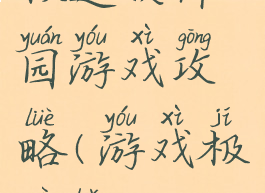 yuán yóu xì gōng
园游戏攻
lüè yóu xì jí
略(游戏极